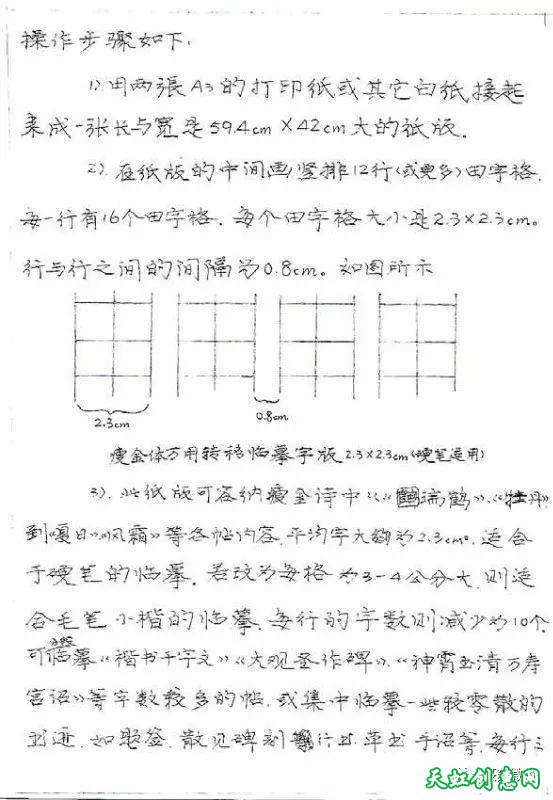 操作步骤如下:
1). 用两張A3的打印纸或其它白纸接起
来成一张长与宽是59.4cm×42cm大的纸版.
2). 在纸版的中间画竖排12行(或更多)田字格.
每一行有16个田字格. 每个田字格大小是2.3×2.3cm。
行与行之间的间隔为0.8cm。如图所示
2.3cm
0.8cm
瘦金体万用转移临摹字版 2.3×2.3cm(硬笔适用)
3). 此纸版可容纳瘦金诗中《《瑞鹤》、《牡丹》
到《夏日》《风霜》等各帖内容, 平均字大约为2.3cm². 适合
于硬笔的临摹. 若改为每格为3-4公分大, 则适
合毛笔小楷的临摹. 每行的字数则减少为10个.
可临摹《楷书千字文》《大观圣作碑》、《神霄玉清万寿
宫诏》等字数较多的帖. 或集中临摹一些较零散的
书迹. 如题签. 散见碑刻 行书. 草书 手诏等. 每行之
天虹创意网